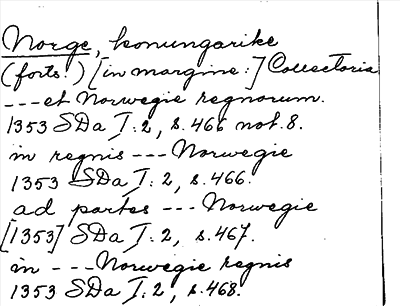 Norge, konungarike
(forts.) [in margine:] Collectoria
---et Norwegie regnorum.
1353 SDa I:2, s.466 not.8.
in regnis --- Norwegie
1353 SDa I:2, s.466.
ad partes --- Norwegie
[1353] SDa I:2, s.467.
in --- Norwegie regnis
1353 SDa I:2, s.468.